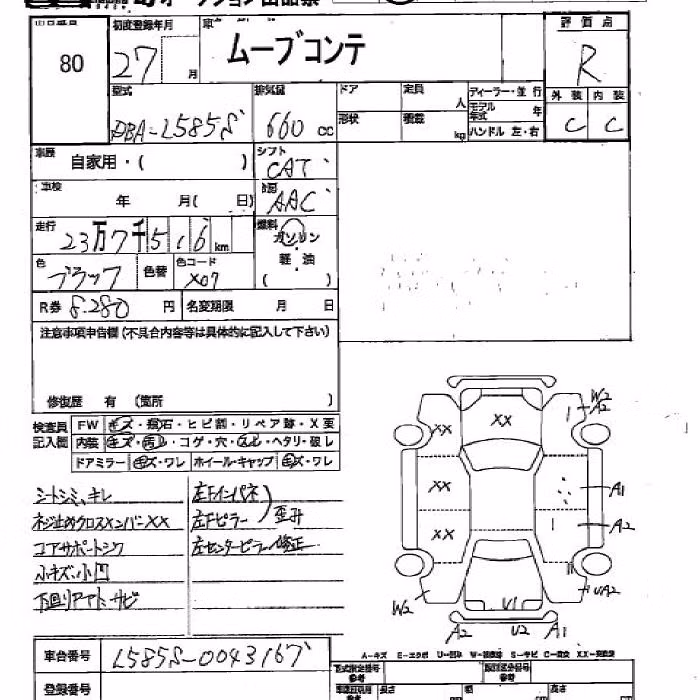 80
初度登録年月
27 月
ムーブコンテ
評価点
R
外装 内装
C C
型式
DBA-L585S
排気量
660 cc
ドア 定員 人
形状 積載 kg
ディーラー・並行
モデル年式 年
ハンドル 左・右
車歴
自家用・( )
シフト
CAT
車検
年 月( 日)
冷房
AAC
走行
23万7千516 km
燃料
ガソリン
軽油
( )
色
ブラック
色替
色コード
X07
R券 8.280 円
名変期限 月 日
注意事項申告欄(不具合内容等は具体的に記入して下さい)
修復歴 有 (箇所 )
検査員記入欄
FW キズ・飛石・ヒビ割・リペア跡・X要
内装 キズ・汚レ・コゲ・穴・スレ・ヘタリ・破レ
ドアミラー キズ・ワレ ホイール・キャップ キズ・ワレ
シートシミ、キレ
ネジ止めクロスメンバーXX
コアサポートシワ
小キズ、小凹
下回リサビ
左Fインパネ
左Fピラー
左センターピラー修正
XX
XX
XX
XX
W2
A2
A1
A2
UA2
W2
U1
A2
U2
A1
車台番号 L585S-0043167
登録番号
A=キズ E=エクボ U=凹み W=補修跡 S=サビ C=腐食 XX=交換済
型式指定番号
参考
類別区分番号
参考
長さ
幅
高さ